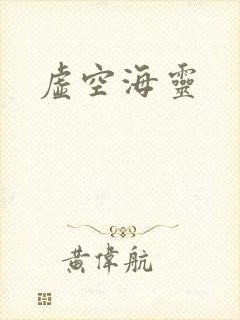 虛空海靈
黃偉航